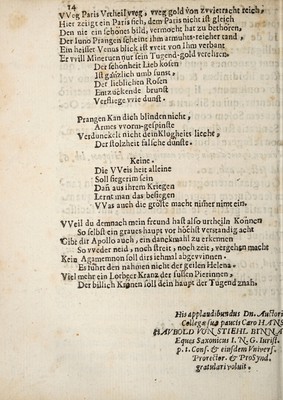 14
VVeg Paris Vrtheil vveg, vveg gold von zvvietracht reich,
Hier zeigt ein Paris sich, dem Paris nicht ist gleich
Den nie ein schönes bild, vermocht hat zu bethören,
Der Juno Prangen scheinc ihm armuhts-reicher tand,
Ein heisset Venus blick ist vveit von Ihm verbant
Er vvill Mineruen nur sein Tugend-gold verehren.
Der schönheit Lieb kosen
Ist gäntzlich umb sunst,
Der lieblichen Rosen
Entzückende brunst
Versliege vvie dunst.
Prangen Kan dich blinden nicht,
Armes vvorm-gespinste
Verdunckelt nicht dein Klogheits liecht,
Der stolzheit falsche dünste.
Keine.
Die VVeis heit alleine
Soll siegerim sein
Dañ aus ihrem Kriegen
Lernt man das besiegen
VVas auch die größte macht nisher nimt ein.
VVeil du demnach mein freund hast also urtheiln Können
So selbst ein graues haupt vor höchst verstandig acht
Gibe dir Apollo auch, ein danckmahl zu erkennen
So vveder neid, noch streit, noch zeit, vergehen macht
Kein Agamemnon soll dirs iehmal abgevvinnen.
Es führt den nahmen nicht der geilen Helena.
Viel mehr ein Lorbger Krantz der süssen Pierinnen,
Der billich Krönen soll dein haupt der Tugend znah.
His applaudibundus Dn. Auctori
Collegæ suo paucis Caro HANS
HAUBOLD VON STIEHL BINNA
Eques Saxonicus I. N. G. Iurist.
p. t. Cons. & ejusdem Univers.
Prorector. & ProSynd.
gratulari voluit.